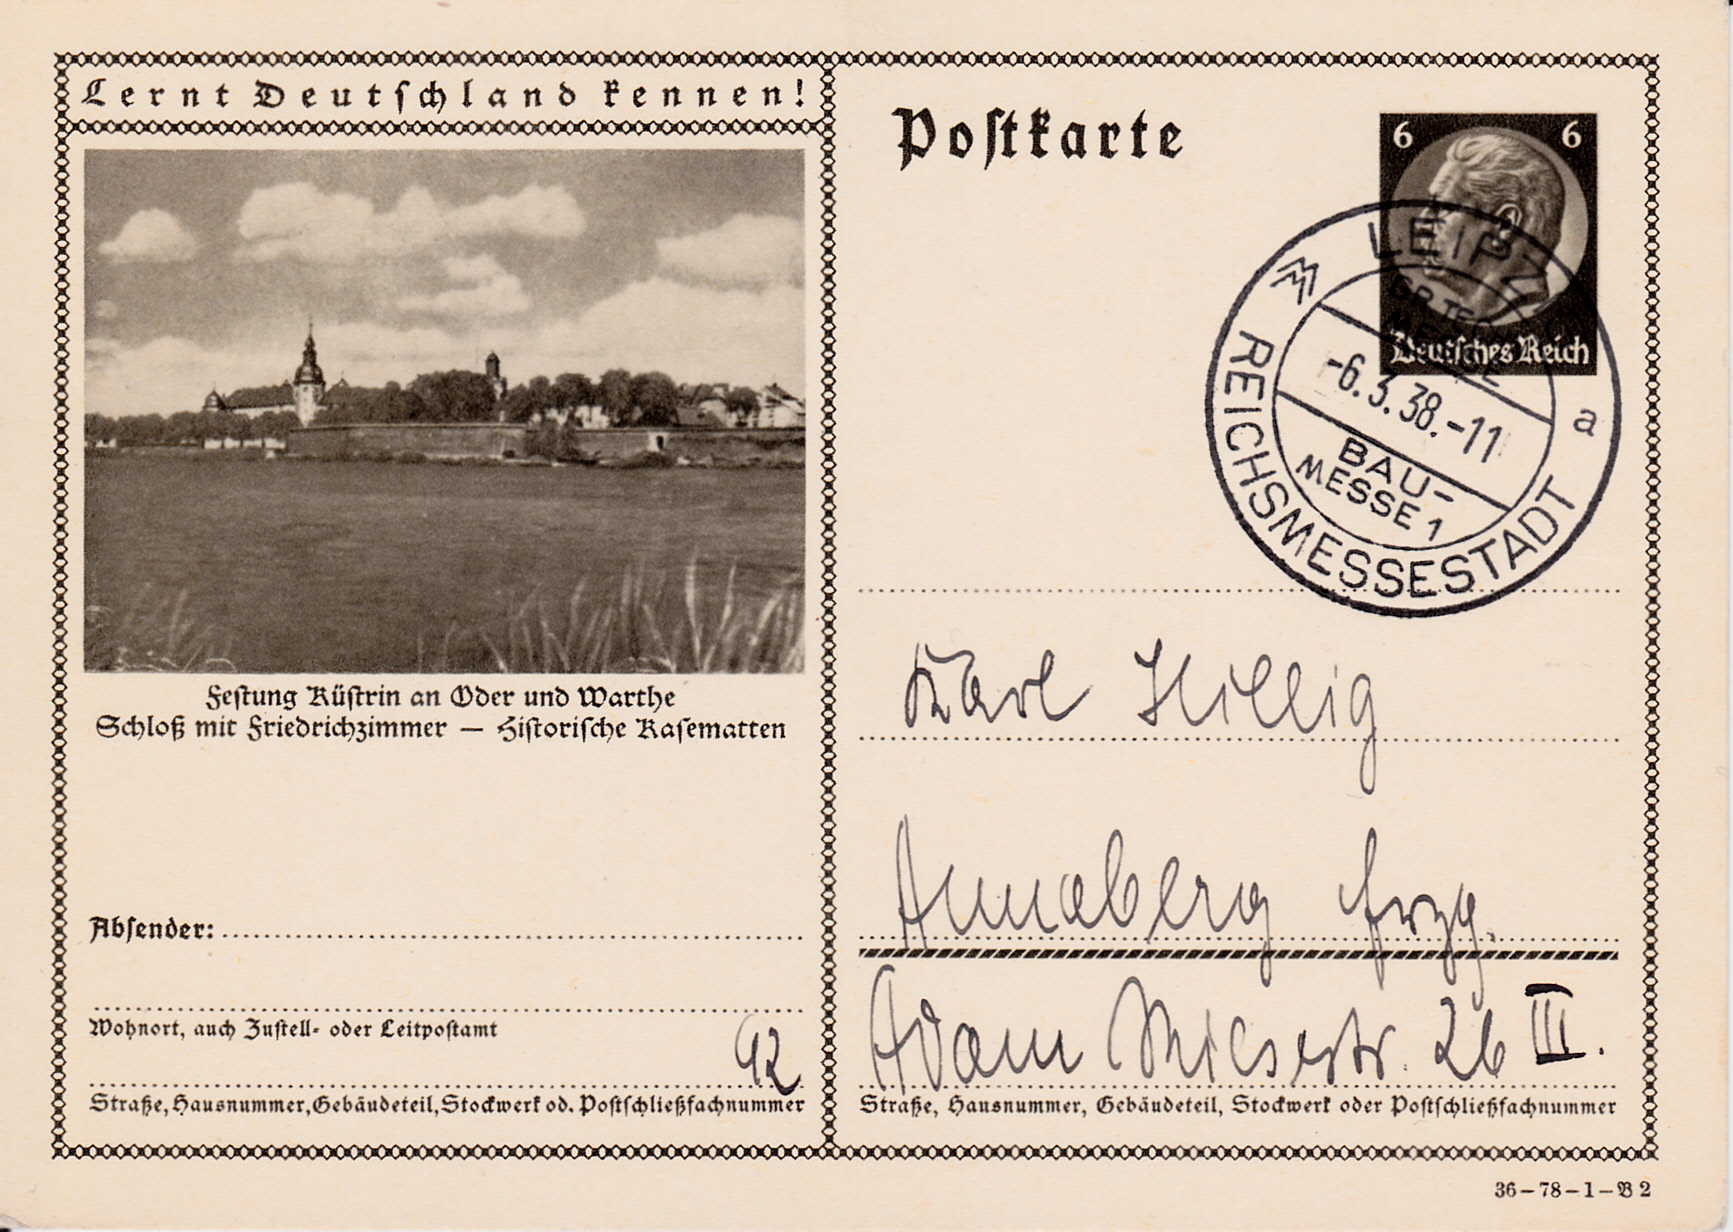 Lernt Deutschland kennen!
Festung Küstrin an Oder und Warthe
Schloß mit Friedrichzimmer — Historische Kasematten
Absender:
Wohnort, auch Zustell- oder Leitpostamt
92
Straße, Hausnummer, Gebäudeteil, Stockwerk od. Postschließfachnummer
Postkarte
6 6
Deutsches Reich
LEIPZIG
GR. TECHN.
MESSE
-6.3.38.-11
a
BAU-
MESSE 1
REICHSMESSESTADT
Karl Hillig
Annaberg Erzg.
Adam Riesestr. 26 III.
Straße, Hausnummer, Gebäudeteil, Stockwerk oder Postschließfachnummer
36-78-1-B 2